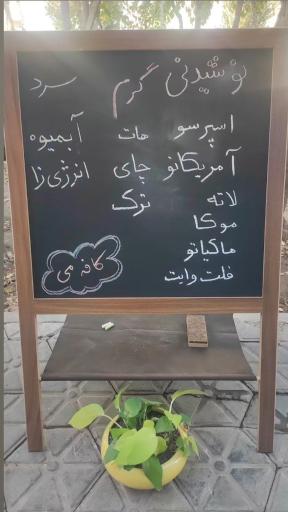 نوشیدنی گرم سرد
اسپرسو هات آبمیوه
آمریکانو چای انرژی زا
لاته ترک
موکا
ماکیاتو
فلت وایت
کافه می